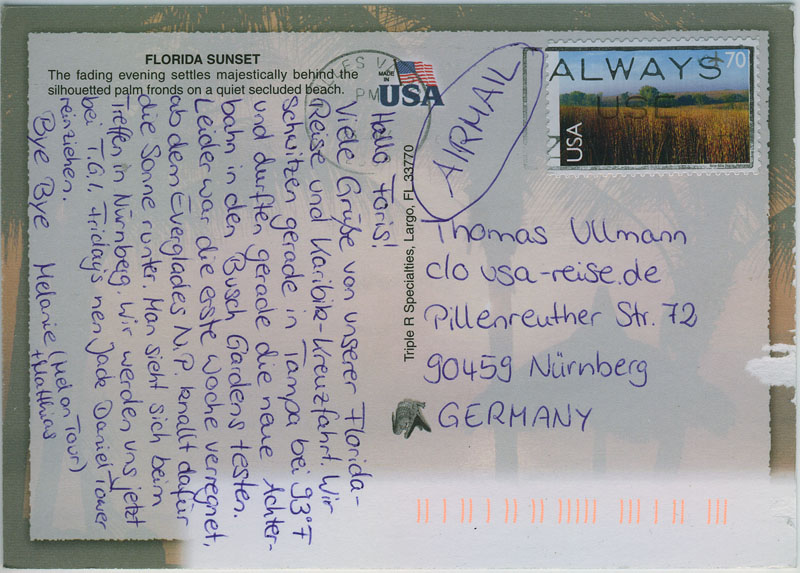 FLORIDA SUNSET
The fading evening settles majestically behind the
silhouetted palm fronds on a quiet secluded beach.
MADE IN
USA
Hallo Foris!
Viele Grüße von unserer Florida-
Reise und Karibik-Kreuzfahrt. Wir
schwitzen gerade in Tampa bei 93°F
und durften gerade die neue Achter-
bahn in den Busch Gardens testen.
Leider war die erste Woche verregnet,
ab dem Everglades N.P. knallt dafür
die Sonne runter. Man sieht sich beim
Treffen in Nürnberg. Wir werden uns jetzt
bei T.G.I. Friday's nen Jack Daniel Tower
reinziehen.
Bye Bye Melanie (Mel on Tour)
+ Matthias
Triple R Specialties, Largo, FL 33770
AIRMAIL
PM
ALWAYS
USE
70
USA
Thomas Ullmann
c/o usa-reise.de
Pillenreuther Str. 72
90459 Nürnberg
GERMANY